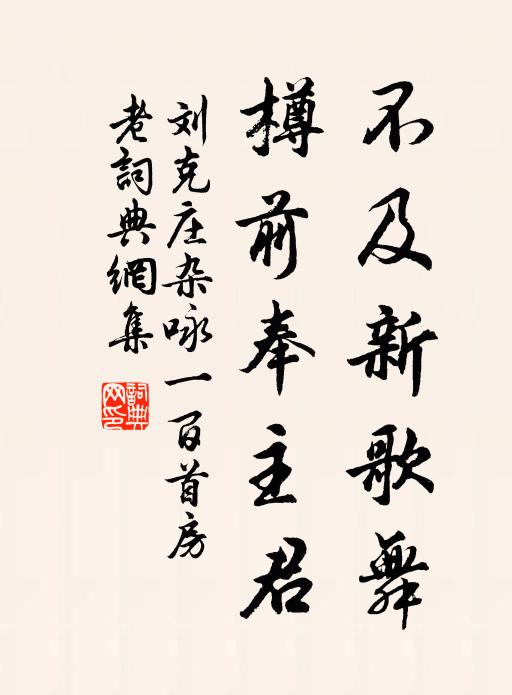 不及新歌舞
樽前奉主君
刘克庄杂咏一百首房
老詞典網集
詞典网印